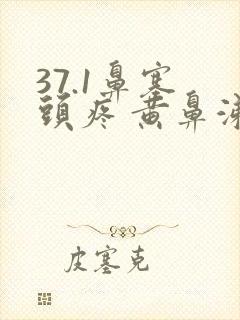 37.1鼻塞
頭疼黄鼻涕
皮塞克